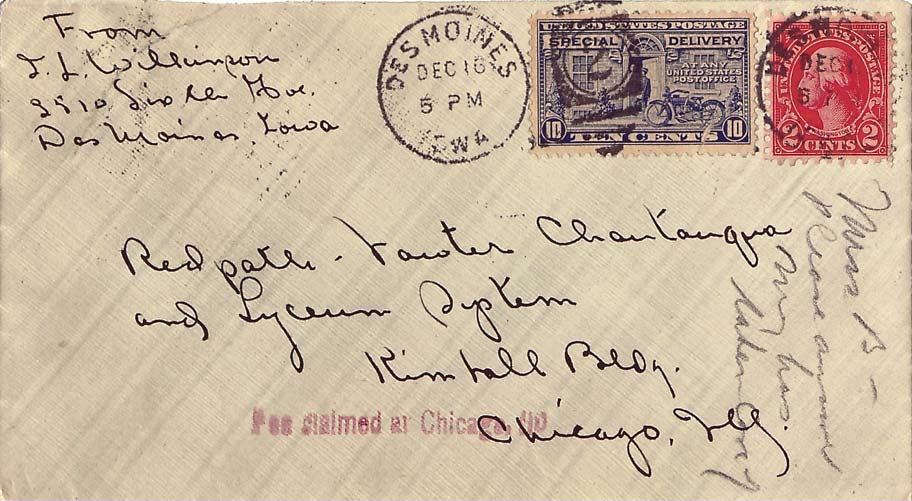 From
L. L. Wilkinson
Sixth Ave.
Des Moines, Iowa
DES MOINES
DEC 16
5 PM
IOWA
UNITED STATES POSTAGE
SPECIAL DELIVERY
AT ANY
UNITED STATES
POST OFFICE
10 TEN CENTS 10
UNITED STATES POSTAGE
DEC 1
WASHINGTON
2 CENTS 2
Redpath-Vawter Chautauqua
and Lyceum System
Kimball Bldg.
Chicago, Ill.
Fee claimed at Chicago, Ill.
Miss B -
Please answer